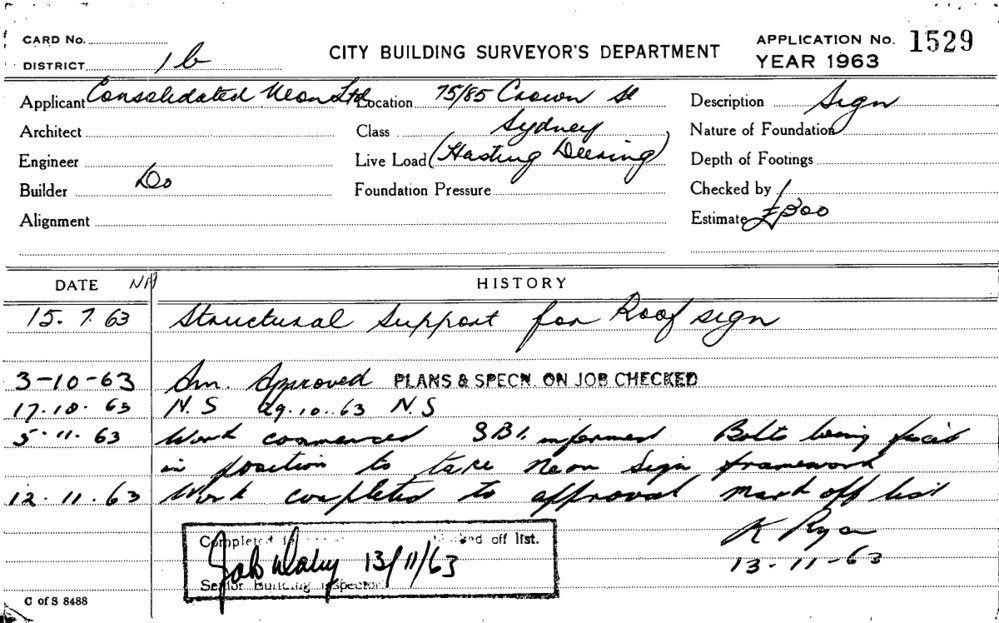 CARD No.
DISTRICT 1b
CITY BUILDING SURVEYOR'S DEPARTMENT
APPLICATION No. 1529
YEAR 1963
Applicant Consolidated Neon Ltd Location 75/85 Crown St Description Sign
Architect Class Sydney Nature of Foundation
Engineer Live Load (Hasting Deering) Depth of Footings
Builder Do Foundation Pressure Checked by
Alignment Estimate £300
DATE HISTORY
15. 7. 63 Structural Support for Roof sign
3-10-63 Approved PLANS & SPECN. ON JOB CHECKED
17.10.63 N.S 29.10.63 N.S
5.11.63 Work commenced S.B.I. informed Bolts being
in position to take neon sign framework
12.11.63 Work completed to approval mark off list
K Ryan
13-11-63
Completed off list.
13/11/63
Senior Building Inspector
C of S 8488